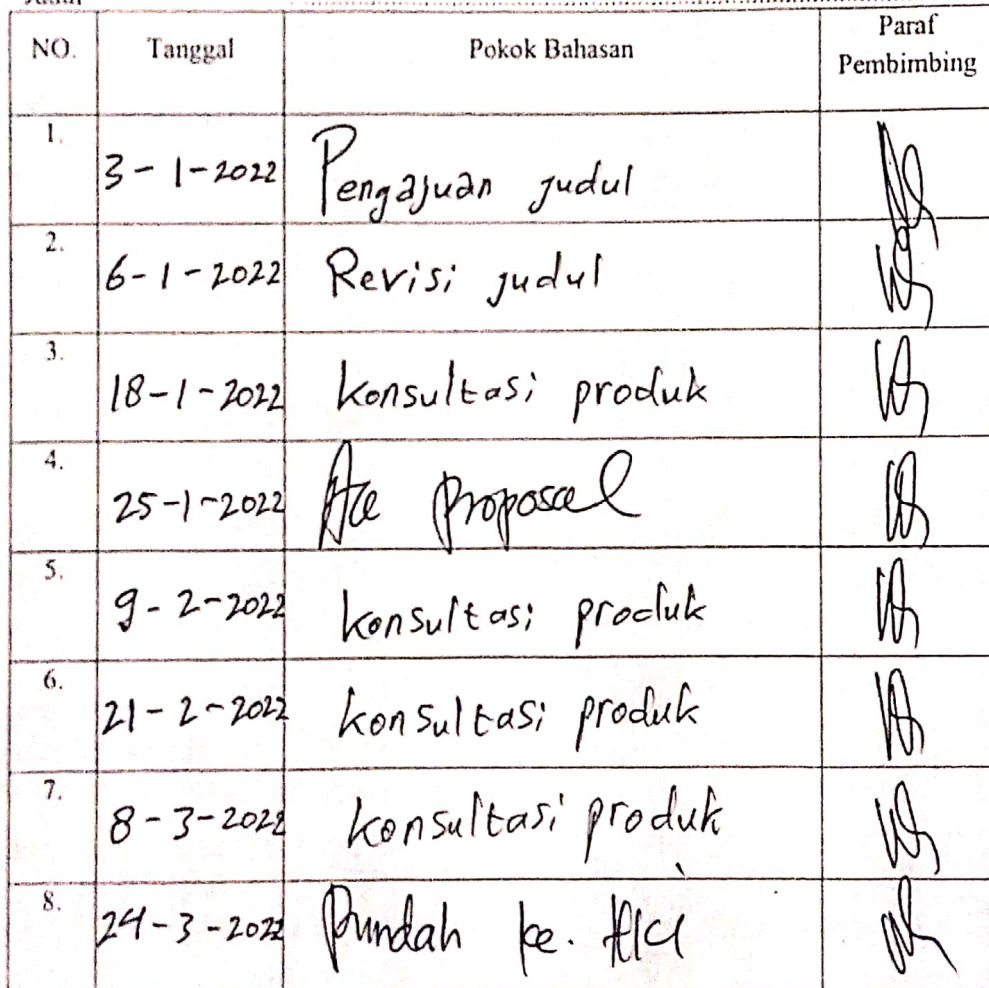 NO. Tanggal Pokok Bahasan Paraf Pembimbing
1. 3-1-2022 Pengajuan judul
2. 6-1-2022 Revisi judul
3. 18-1-2022 konsultasi produk
4. 25-1-2022 Acc proposal
5. 9-2-2022 konsultasi produk
6. 21-2-2022 konsultasi produk
7. 8-3-2022 konsultasi produk
8. 24-3-2022 ke.